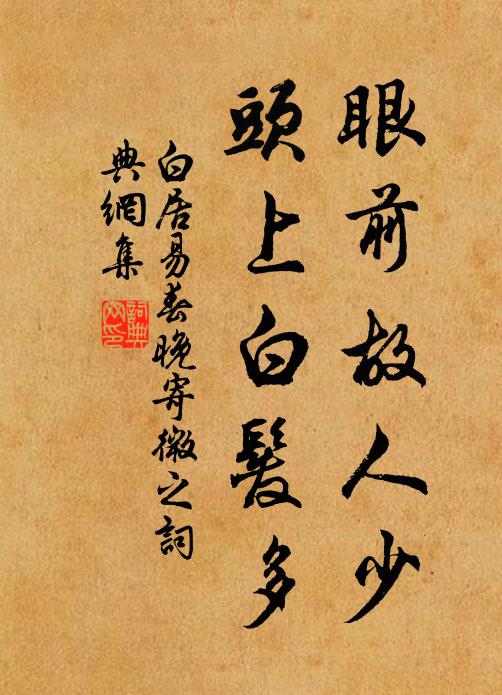 眼前故人少
頭上白髮多
白居易春晚寄微之詞
典網集
詞典網印